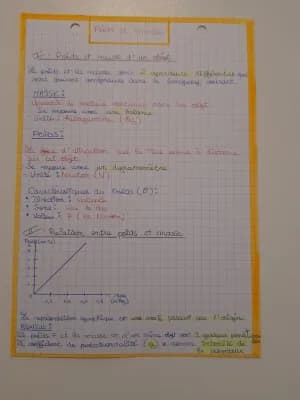 Poids et masse
I : Poids et masse d'un objet
Le poids et la masse sont 2 grandeurs différentes qui
sont souvent dans le langage courant
MASSE:
Quantité de matière contenue dans un objet
Se mesure avec une balance
Unité : Kilogramme (Kg)
POIDS:
d'attraction que la Terre exerce à distance
sur cet objet.
Se mesure avec un dynamomètre
- Unité : Newton (N)
Caractéristiques du Poids (P):
• Direction : Verticale
• Sens : vers le bas
• Valeur : P (en Newton)
II : Relation entre poids et masse
Poids (en N)
masse
(en Kg)
La représentation graphique est une droite passant par l'origine
Le poids P et la masse m d'un même objet sont 2 grandeurs
Le coefficient de proportionnalité (g) se nomme intensité de
la pesanteur